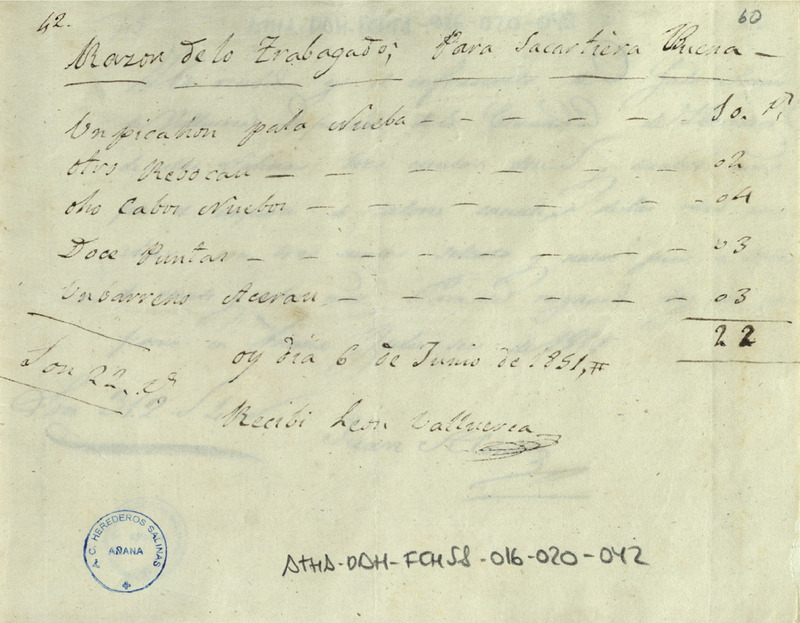 42.
60
Razon de lo Trabagado; Para Sacartiera Buena —
Un picachon pala Nueba — — — — — 10. r.s
otro Rebocau — — — — — — — 02
oho Cabos Nuebos — — — — — — — 04
Doce Puntas — — — — — — — — 03
Un barreno Acerau — — — — — — 03
22
Son 22. rs
oy dia 6 de Junio de 1851,
Recibi Leon Valluerca
A.C. HEREDEROS SALINAS
AÑANA
ATHA-DAH-FCMSS-016-020-042